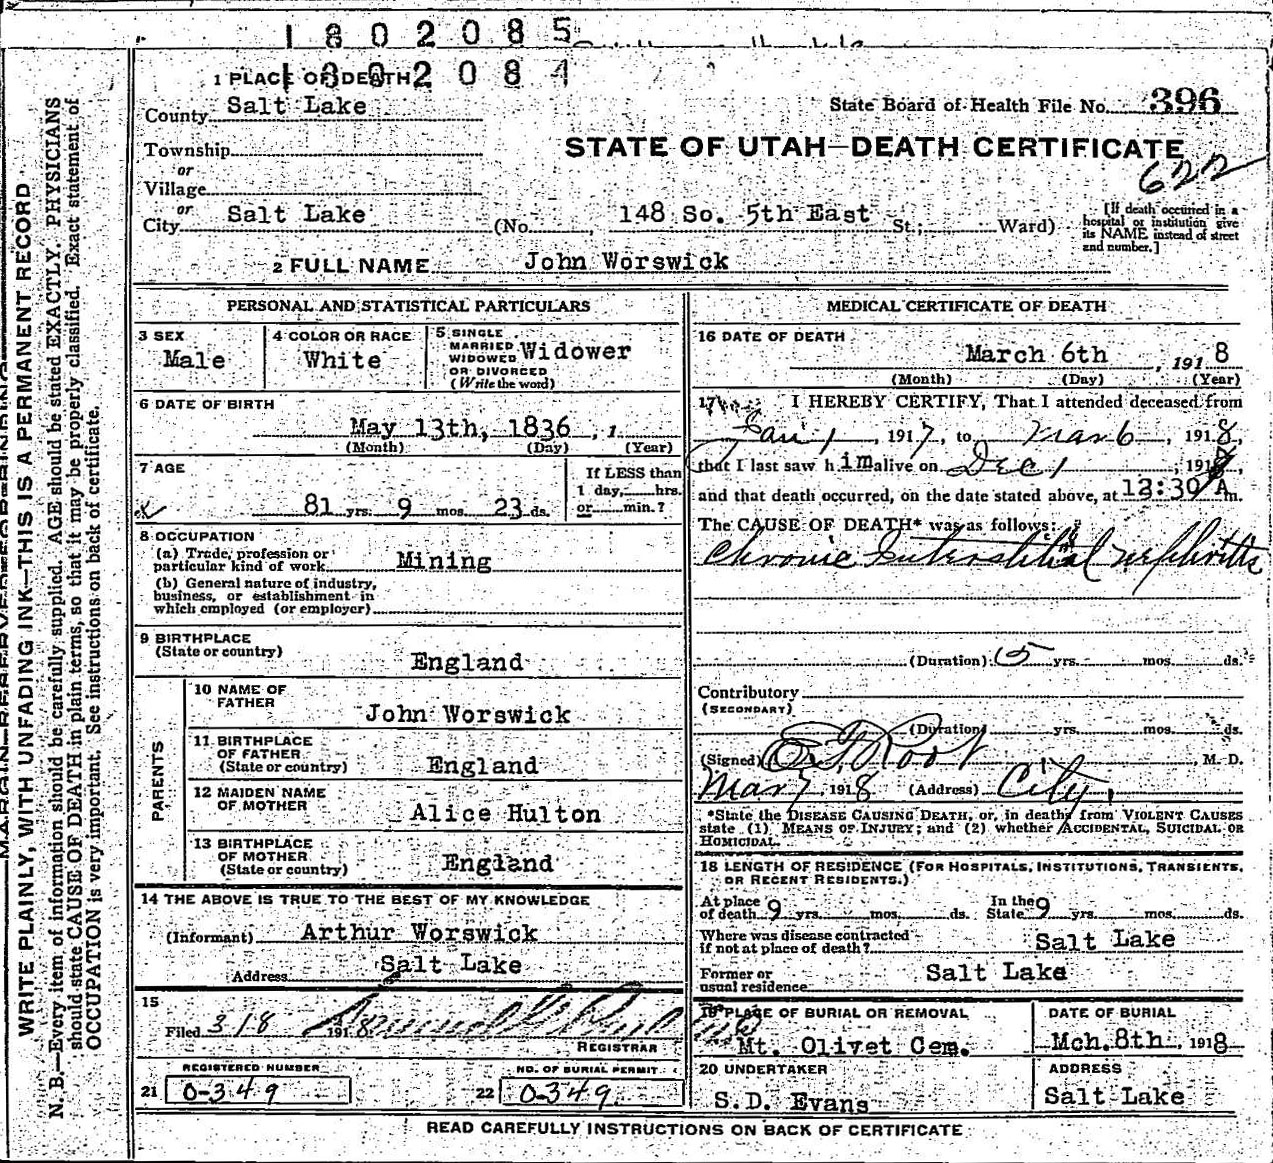 1802085
1802084
1 PLACE OF DEATH
County Salt Lake
State Board of Health File No. 396
Township
STATE OF UTAH—DEATH CERTIFICATE
622
or
Village
or
City Salt Lake (No. 148 So. 5th East St.; Ward)
[If death occurred in a hospital or institution give its NAME instead of street and number.]
2 FULL NAME John Worswick
PERSONAL AND STATISTICAL PARTICULARS
3 SEX
Male
4 COLOR OR RACE
White
5 SINGLE
MARRIED
WIDOWED
OR DIVORCED
(Write the word)
Widower
6 DATE OF BIRTH
May 13th, 1836, 1
(Month) (Day) (Year)
7 AGE
81 yrs. 9 mos. 23 ds.
If LESS than
1 day, hrs.
or min.?
8 OCCUPATION
(a) Trade, profession or
particular kind of work Mining
(b) General nature of industry,
business, or establishment in
which employed (or employer)
9 BIRTHPLACE
(State or country)
England
PARENTS
10 NAME OF
FATHER
John Worswick
11 BIRTHPLACE
OF FATHER
(State or country) England
12 MAIDEN NAME
OF MOTHER
Alice Hulton
13 BIRTHPLACE
OF MOTHER
(State or country) England
14 THE ABOVE IS TRUE TO THE BEST OF MY KNOWLEDGE
(Informant) Arthur Worswick
Address Salt Lake
15
Filed 3/8 1918
REGISTRAR
REGISTERED NUMBER
21 0-349
NO. OF BURIAL PERMIT
22 0-349
MEDICAL CERTIFICATE OF DEATH
16 DATE OF DEATH
March 6th, 1918
(Month) (Day) (Year)
17 I HEREBY CERTIFY, That I attended deceased from
Jan 1, 1917, to Mar 6, 1918,
that I last saw him alive on Dec 1, 191
and that death occurred, on the date stated above, at 12:30 A m.
The CAUSE OF DEATH* was as follows:
Chronic Interstitial nephritis
(Duration) 5 yrs. mos. ds.
Contributory
(SECONDARY)
(Duration) yrs. mos. ds.
(Signed) Root, M. D.
Mar 7, 1918 (Address) City.
*State the DISEASE CAUSING DEATH, or, in deaths from VIOLENT CAUSES
state (1) MEANS OF INJURY; and (2) whether ACCIDENTAL, SUICIDAL OR
HOMICIDAL.
18 LENGTH OF RESIDENCE (FOR HOSPITALS, INSTITUTIONS, TRANSIENTS,
OR RECENT RESIDENTS.)
At place of death 9 yrs. mos. ds. In the State 9 yrs. mos. ds.
Where was disease contracted
if not at place of death? Salt Lake
Former or
usual residence Salt Lake
19 PLACE OF BURIAL OR REMOVAL
Mt. Olivet Cem.
DATE OF BURIAL
Mch. 8th, 1918
20 UNDERTAKER
S.D. Evans
ADDRESS
Salt Lake
READ CAREFULLY INSTRUCTIONS ON BACK OF CERTIFICATE
WRITE PLAINLY, WITH UNFADING INK—THIS IS A PERMANENT RECORD
N. B.—Every item of information should be carefully supplied. AGE should be stated EXACTLY. PHYSICIANS
should state CAUSE OF DEATH in plain terms, so that it may be properly classified. Exact statement of
OCCUPATION is very important. See instructions on back of certificate.